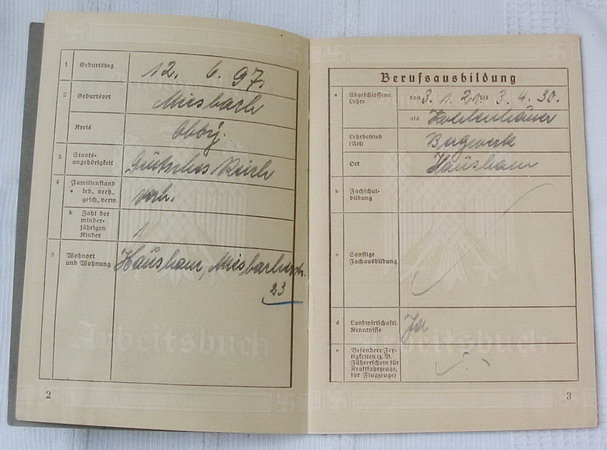 1 Geburtstag 12. 6. 97.
2 Geburtsort Miesbach
Kreis Obby.
3 Staats-
angehörigkeit Deutsches Reich
4 Familienstand
a led., verh.,
gesch., verw. verh.
b Zahl der
minder-
jährigen
Kinder 1
5 Wohnort
und Wohnung Hausham, Miesbacherstr.
23
Arbeitsbuch
2
Berufsausbildung
a Abgeschlossene
Lehre von 3. 1. 21 bis 3. 4. 30.
als Kohlenhauer
Lehrbetrieb
(Art) Bergwerk
Ort Hausham
b Fachschul-
bildung
c Sonstige
Fachausbildung
d Landwirtschaftl.
Kenntnisse Ja
e Besondere Fer-
tigkeiten (z. B.
Führerschein für
Kraftfahrzeuge,
für Flugzeuge)
Arbeitsbuch
3